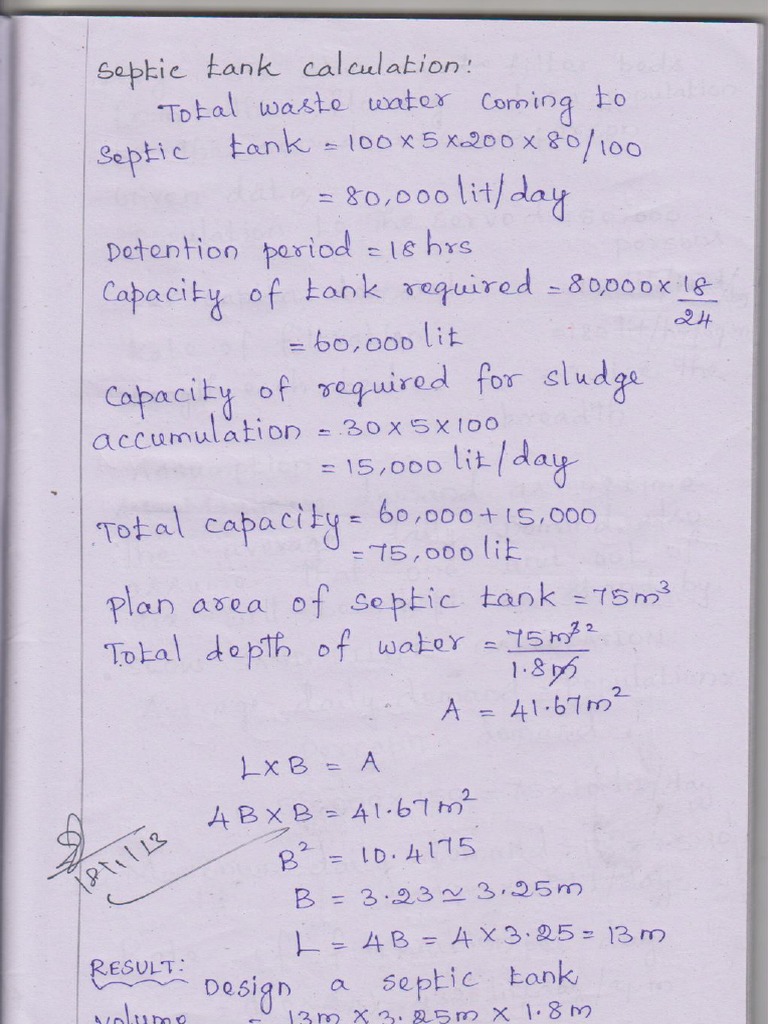 Septic tank calculation:
Total waste water coming to
septic tank = 100 x 5 x 200 x 80/100
= 80,000 lit/day
Detention period = 18 hrs
Capacity of tank required = 80,000 x 18/24
= 60,000 lit
Capacity of required for sludge
accumulation = 30 x 5 x 100
= 15,000 lit/day
Total capacity = 60,000 + 15,000
= 75,000 lit
Plan area of septic tank = 75m³
Total depth of water = 75m²/1.8m
A = 41.67m²
L x B = A
4B x B = 41.67m²
B² = 10.4175
B = 3.23 ≃ 3.25m
18/1/13
L = 4B = 4 x 3.25 = 13m
RESULT:
Design a septic tank
volume = 13m x 3.25m x 1.8m